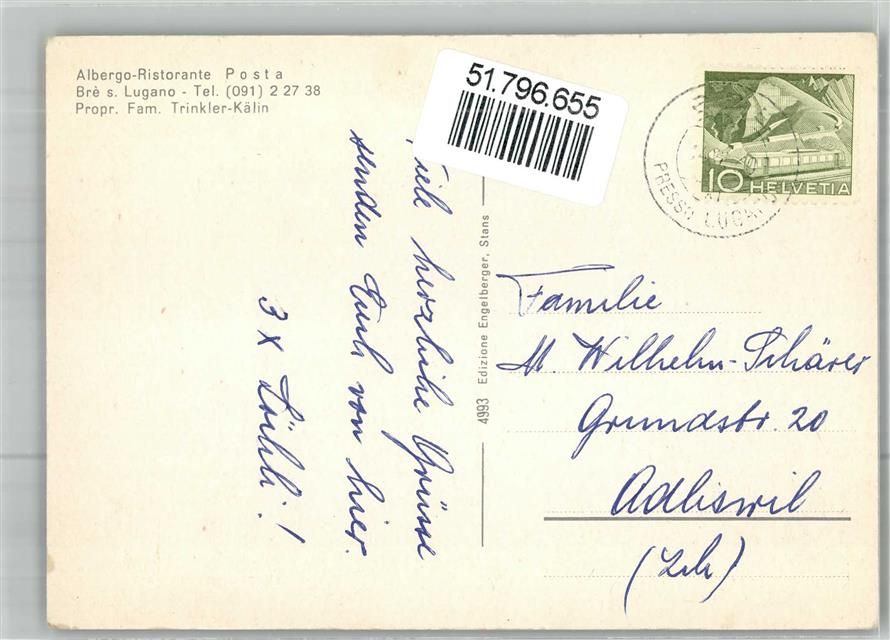 Albergo-Ristorante Posta
Brè s. Lugano - Tel. (091) 2 27 38
Propr. Fam. Trinkler-Kälin
51.796.655
10 HELVETIA
PRESSO
4993 Edizione Engelberger, Stans
herzliche Grüsse
senden Euch von hier.
3 x
Familie
M. Wilhelm-Schärer
Grundstr. 20
Adliswil
(Zch)